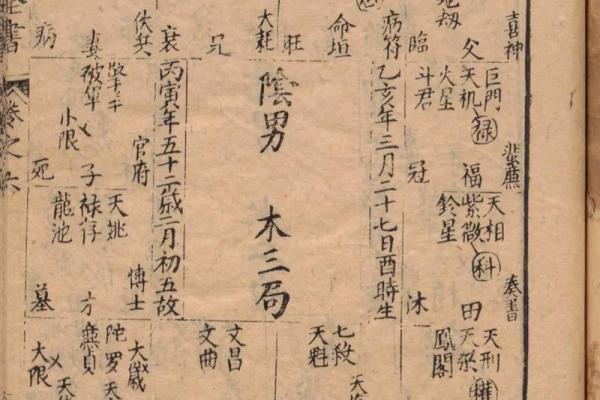 喜神
蜚廉
奏書
巨門
天机祿
火星
父
天相
紫微科
鈴星
福
天刑
天梁權
鳳閣
田
斗君
臨
冠
沐
病符
乙亥年三月二十七日酉時生
命垣
旺
大耗
兄
陰男
木三局
七殺
天魁
文昌
文曲
伏兵
衰
丙寅年五十二歲二月初五故
官府
博士
大歲
擎羊
破軍
妻
小限
子
天姚
祿存
龍池
方
陀罗
廉貞
大限
病
死
墓
全書
卷之六